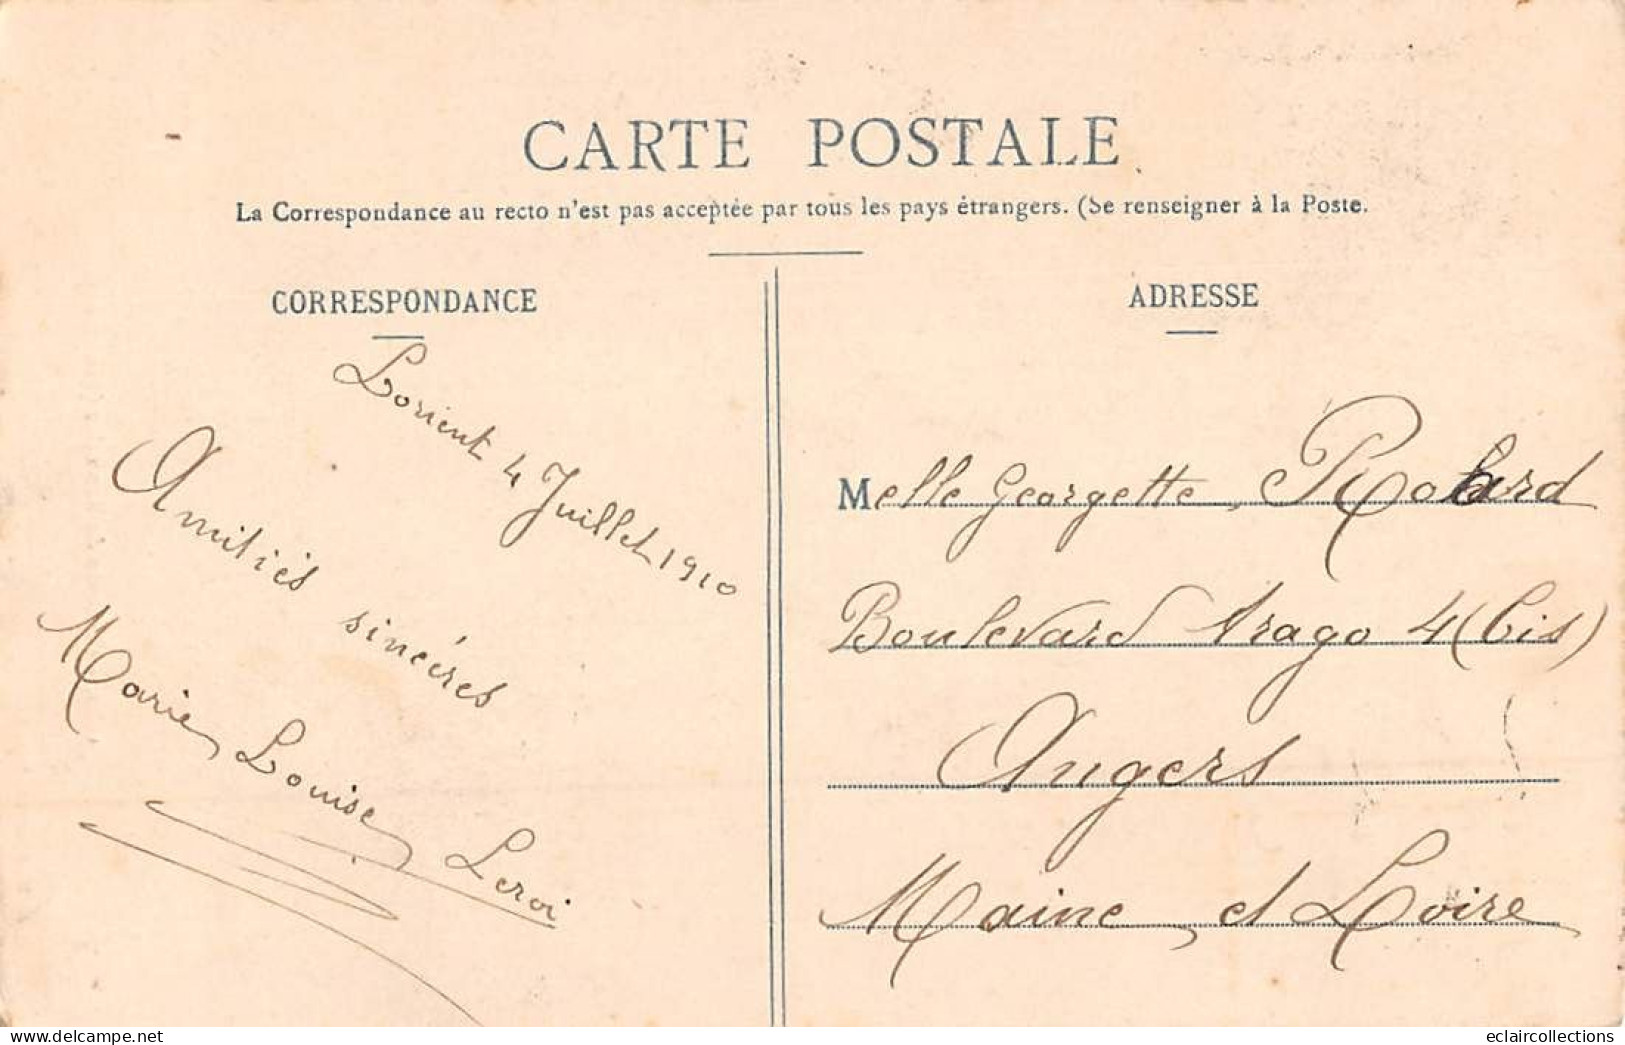 CARTE POSTALE
La Correspondance au recto n'est pas acceptée par tous les pays étrangers. (Se renseigner à la Poste.
CORRESPONDANCE
Lorient 4 Juillet 1910
Amitiés sincères
Marie Louise Leroi
ADRESSE
Melle Georgette
Boulevard Arago 4 (bis)
Angers
Maine et Loire
www.delcampe.net
eclaircollections